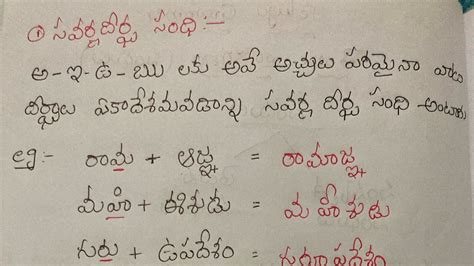 ① సవర్ణదీర్ఘ సంధి :-
అ-ఇ-ఉ-ఋ లకు అవే అచ్చులు పరమైనా వాటి
దీర్ఘాలు ఏకాదేశమవడాన్ని సవర్ణ దీర్ఘ సంధి అంటారు
eg:- రామ + ఆజ్ఞ = రామాజ్ఞ
మహి + ఈశుడు = మహీశుడు
గురు + ఉపదేశం = గురూపదేశం